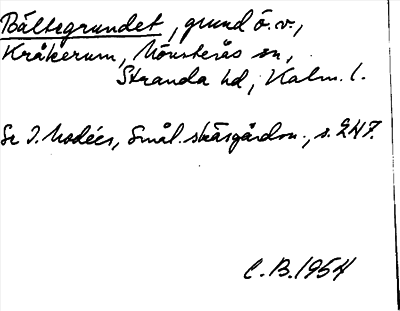 Bältegrundet, grund ö. v.,
Kråkerum, Mönsterås sn,
Stranda hd, Kalm. l.
Se I. Modéer, Smål. skärgårdsn., s. 247.
C. B. 1954